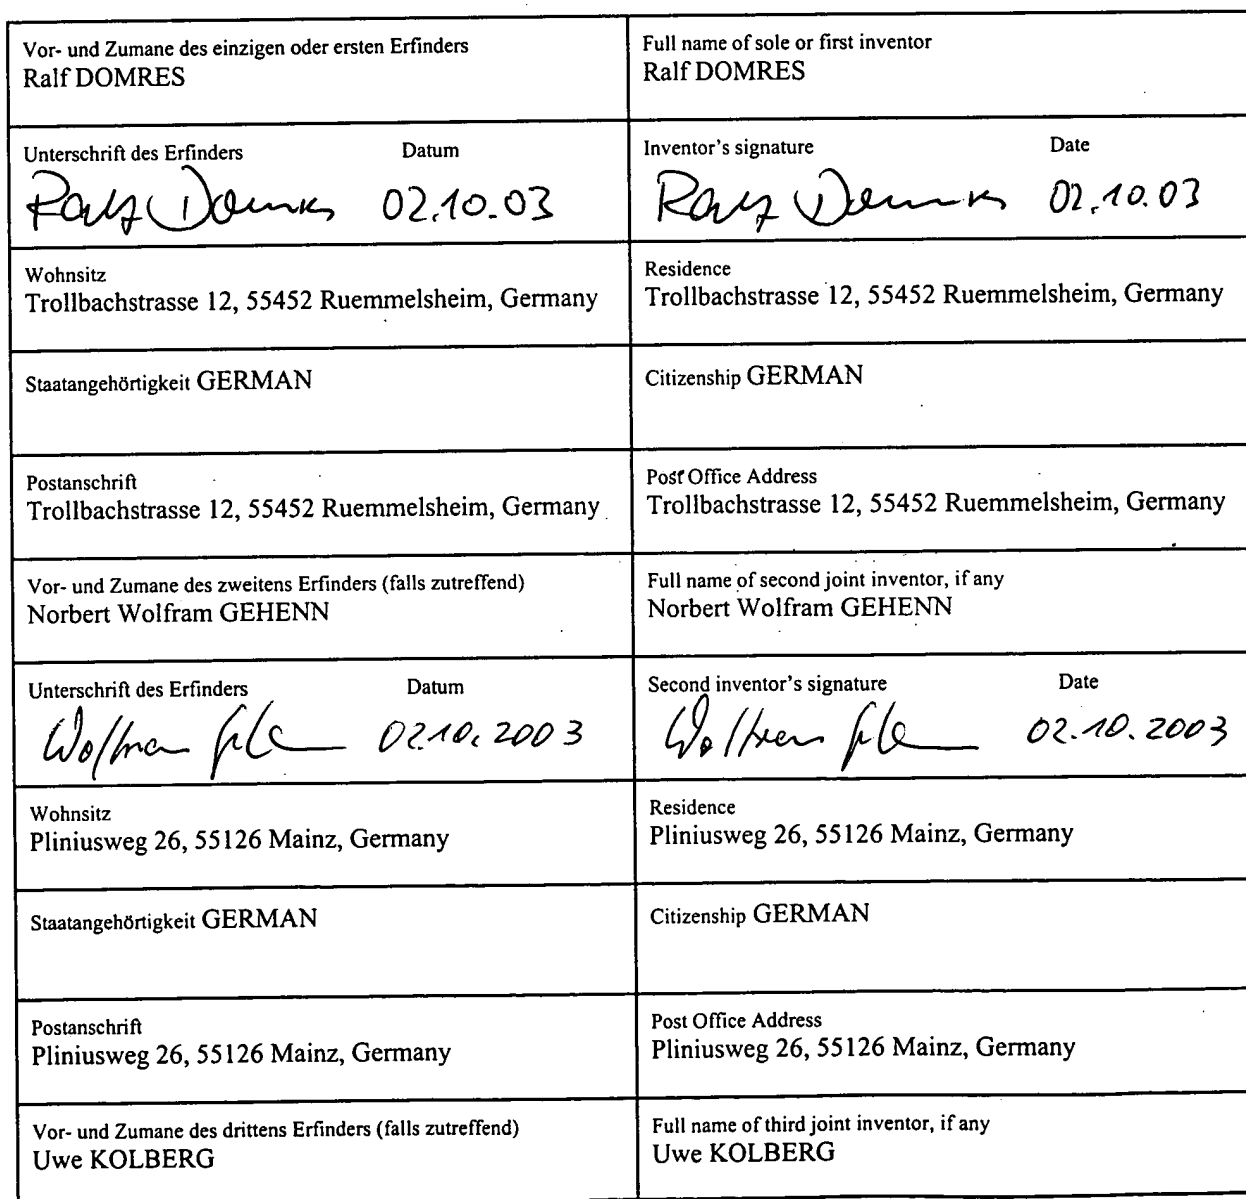 Vor- und Zumane des einzigen oder ersten Erfinders
Ralf DOMRES
Full name of sole or first inventor
Ralf DOMRES
Unterschrift des Erfinders Datum
Ralf Domres 02.10.03
Inventor's signature Date
Ralf Domres 02.10.03
Wohnsitz
Trollbachstrasse 12, 55452 Ruemmelsheim, Germany
Residence
Trollbachstrasse 12, 55452 Ruemmelsheim, Germany
Staatangehörtigkeit GERMAN
Citizenship GERMAN
Postanschrift
Trollbachstrasse 12, 55452 Ruemmelsheim, Germany
Post Office Address
Trollbachstrasse 12, 55452 Ruemmelsheim, Germany
Vor- und Zumane des zweitens Erfinders (falls zutreffend)
Norbert Wolfram GEHENN
Full name of second joint inventor, if any
Norbert Wolfram GEHENN
Unterschrift des Erfinders Datum
Wolfram 02.10.2003
Second inventor's signature Date
Wolfram 02.10.2003
Wohnsitz
Pliniusweg 26, 55126 Mainz, Germany
Residence
Pliniusweg 26, 55126 Mainz, Germany
Staatangehörtigkeit GERMAN
Citizenship GERMAN
Postanschrift
Pliniusweg 26, 55126 Mainz, Germany
Post Office Address
Pliniusweg 26, 55126 Mainz, Germany
Vor- und Zumane des drittens Erfinders (falls zutreffend)
Uwe KOLBERG
Full name of third joint inventor, if any
Uwe KOLBERG